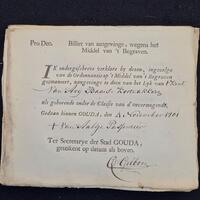 Pro Deo. Billet van aangevinge, wegens het
Middel van 't Begraven.
IK ondergeschreve verklare by deezen, ingevolge
van de Ordonnantie op 't Middel van 't Begraven
geëmaneert, aangevinge te doen van het Lyk van 't Kint
van Ary
als gehorende onder de Classis van d' onvermogende.
Gedaan binnen GOUDA, den November 1801
Ter Secretarye der Stad GOUDA,
getekent op datum als boven.